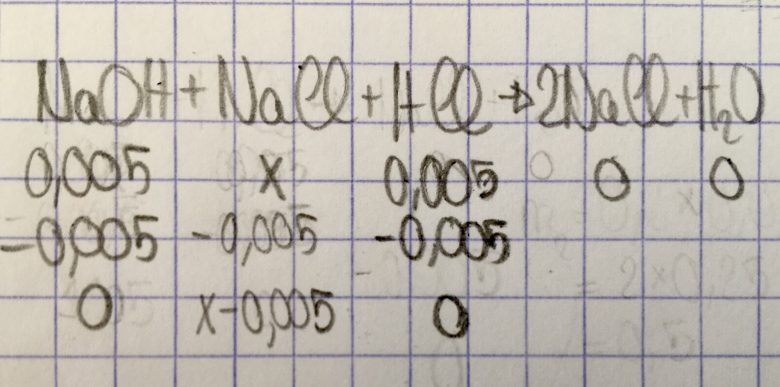 NaOH + NaCl + HCl → 2NaCl + H₂O
0,005 x 0,005 0 0
-0,005 -0,005 -0,005
0 x-0,005 0